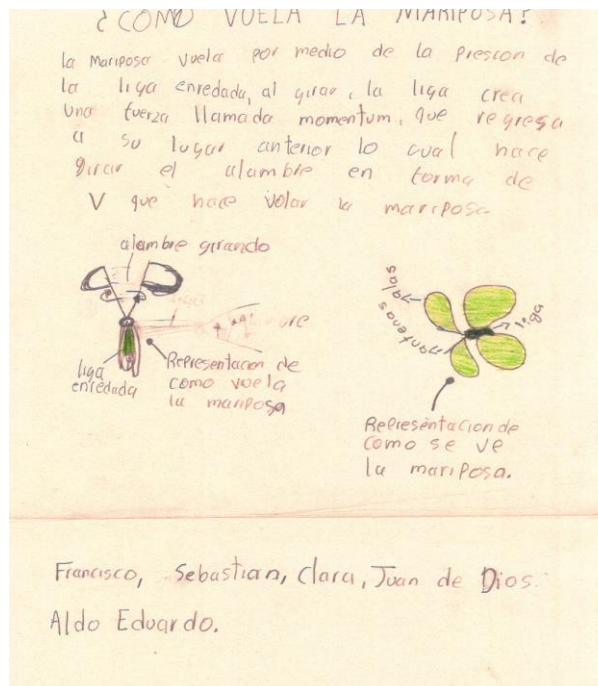 ¿COMO VUELA LA MARIPOSA?
la Mariposa vuela por medio de la presion de
la liga enredada, al girar, la liga crea
una fuerza llamada momentum, que regresa
a su lugar anterior lo cual hace
girar el alambre en forma de
V que hace volar la mariposa.
alambre girando
liga
liga
enredada
Representacion de
como vuela
la mariposa
alas
antenas
liga
Representacion de
como se ve
la mariposa.
Francisco, Sebastian, Clara, Juan de Dios.
Aldo Eduardo.